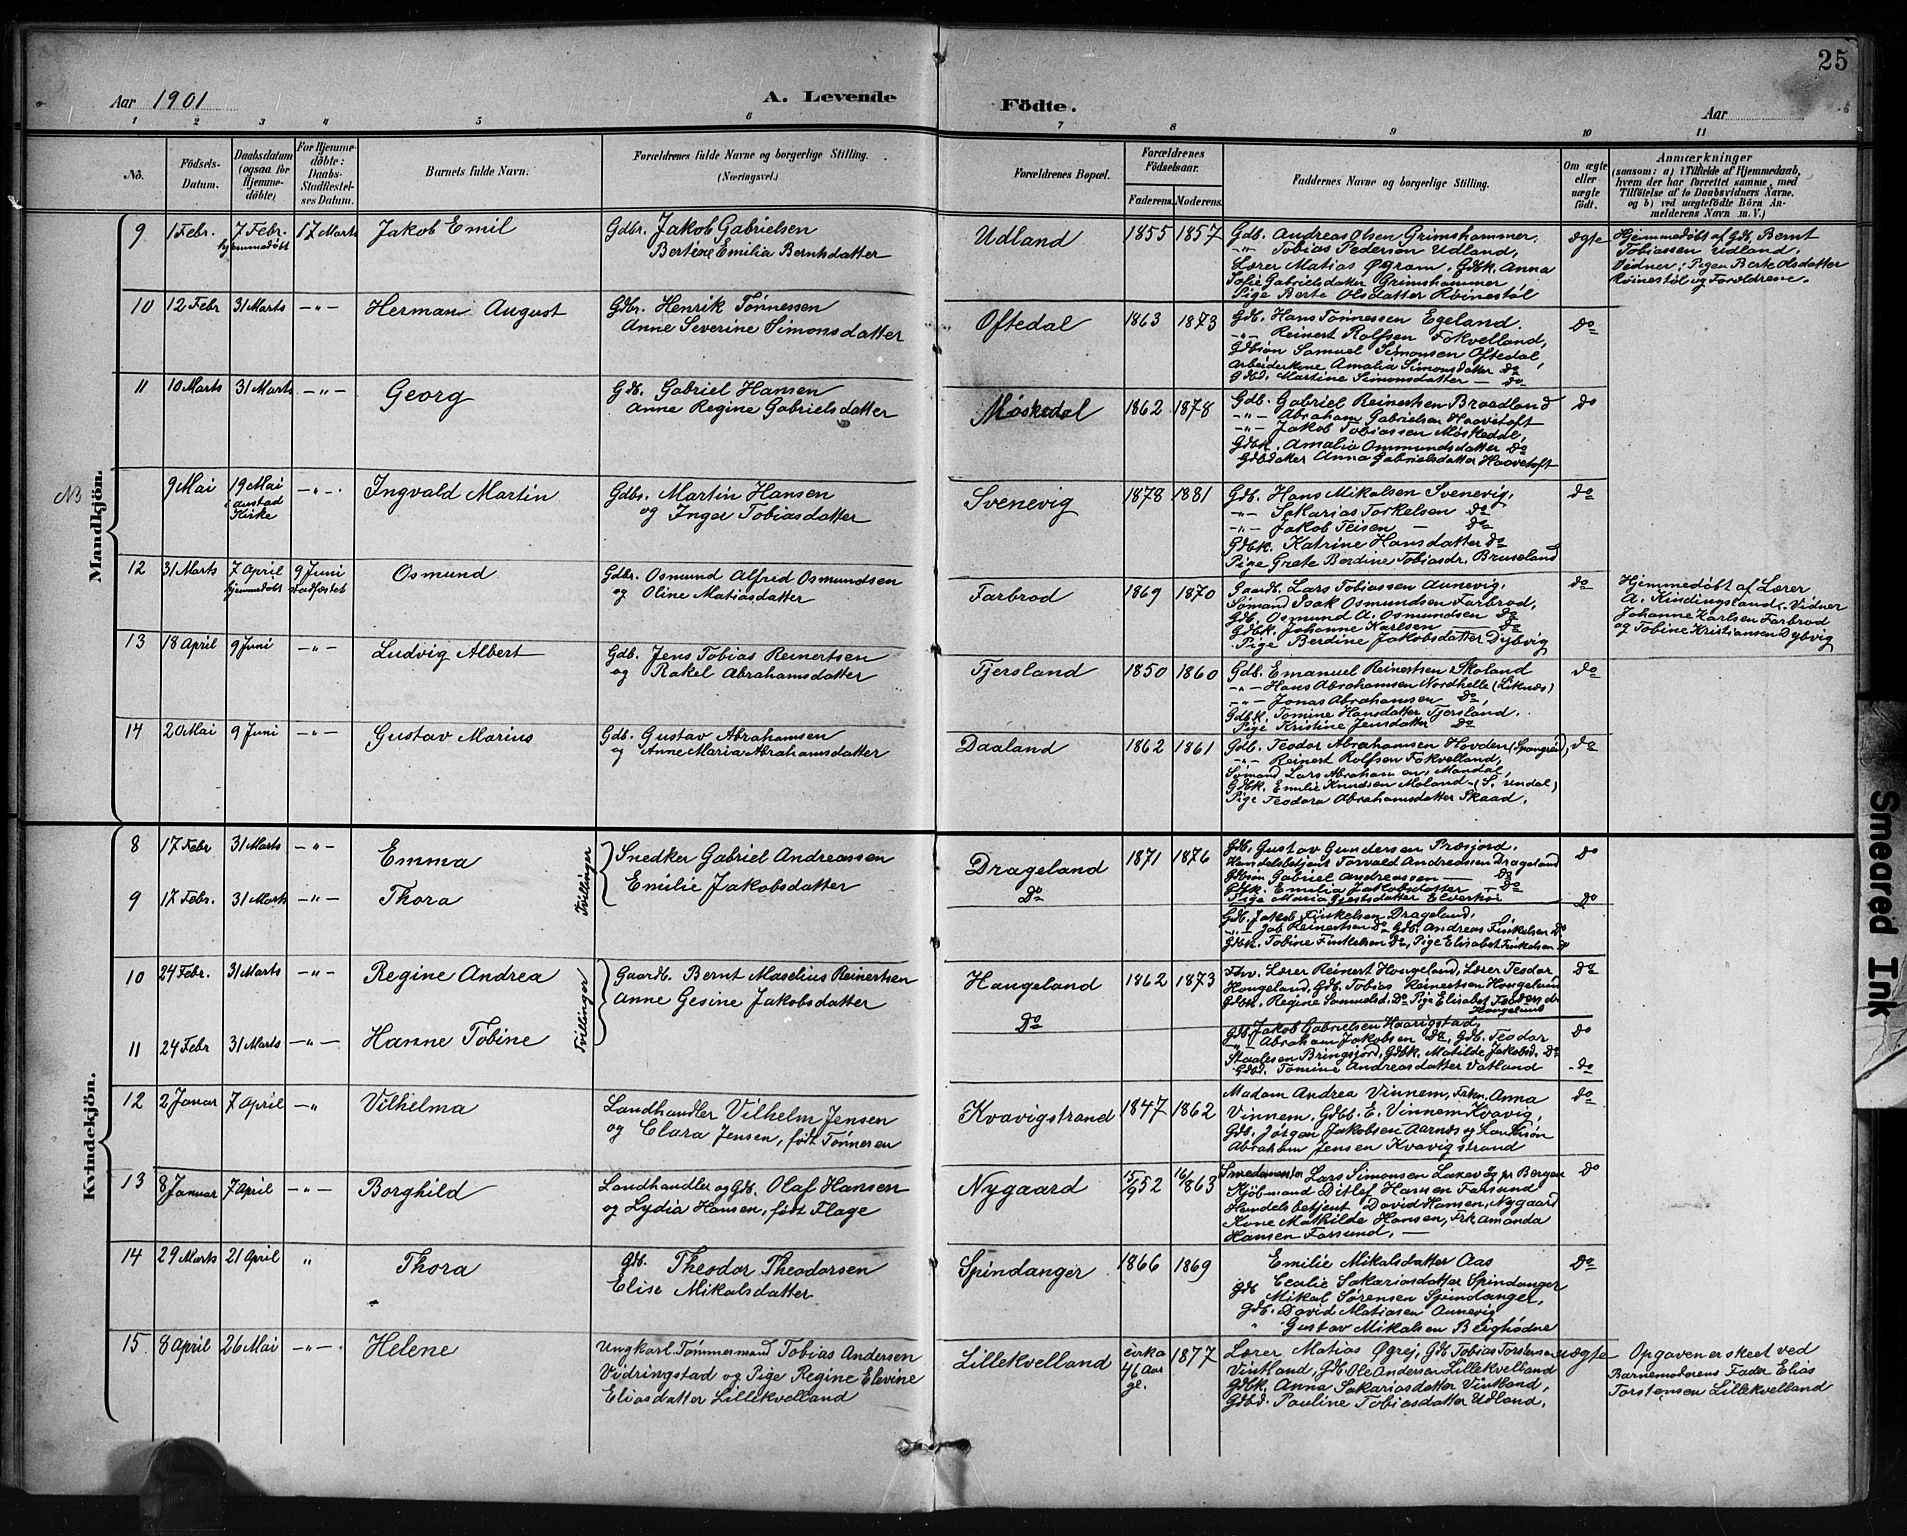 25
Aar 1901
A. Levende
Födte.
Aar
1 2 3 4 5 6 7 8 9 10 11
No.
Födsels-
Datum.
Daabsdatum
(ogsaa for
Hjemme-
döbte).
For Hjemme-
döbte:
Daabs-
Stadfestel-
ses Datum.
Barnets fulde Navn.
Forældrenes fulde Navne og borgerlige Stilling.
(Næringsvei.)
Forældrenes Bopæl.
Forældrenes
Födselsaar.
Faderens. Moderens.
Faddernes Navne og borgerlige Stilling.
Om ægte
eller
uægte
födt.
Anmærkninger
(saasom: a) i Tilfælde af Hjemmedaab,
hvem der har forrettet samme, med
Tilföielse af to Daabsvidners Navne.
og b) ved uægtefödte Börn An-
melderens Navn m. V.)
Mandkjön.
9 1 Febr. 7 Febr. 17 Marts Jakob Emil Gdbr. Jakob Gabrielsen Udland 1855 1857 Gdb. Andreas Olsen Grimshammer, ægte Hjemmedøbt af Gdb. Bernt
hjemmedøbt Bertine Emilia Berntsdatter -"- Tobias Pedersen Udland, Tobiassen Udland.
Lærer Matias Øgram, Gdbk. Anna Vidner: Pigen Berte Olsdatter
Sofie Gabrielsdatter Grimshammer Røinestøl og Forældrene.
Pige Berte Olsdatter Røinestøl
10 12 Febr 31 Marts -"- Herman August Gdbr. Henrik Tønnessen Oftedal 1863 1873 Gdb. Hans Tønnessen Egeland. Do
Anne Severine Simonsdatter -"- Reinert Rolfsen Fokvelland,
Gdbsøn Samuel Simonsen Oftedal,
Arbeiderkone Amalia Simonsdatter Do
Gdbd. Martine Simonsdatter - Do
11 10 Marts 31 Marts -"- Georg Gdb. Gabriel Hansen Møskedal 1862 1878 Gdb. Gabriel Reinertsen Braedland Do
Anne Regine Gabrielsdatter -"- Abraham Gabrielsen Haavetoft
-"- Jakob Tobiassen Møskedal,
Gdbk. Amalia Ommundsdatter Do
Gdbdatter Anna Gabrielsdatter Haavetoft
NB 9 Mai 19 Mai -"- Ingvald Martin Gdbr. Martin Hansen Svenevig 1878 1881 Gdb. Hans Mikalsen Svenevig, Do
i Austad og Inger Tobiasdatter -"- Sakarias Torkelsen Do
Kirke -"- Jakob Teisen - Do
Gdbk. Katrine Hansdatter Do
Pige Grete Berdine Tobiasdr. Bruseland
12 31 Marts 7 April 9 Juni Osmund Gdbr. Osmund Alfred Osmundsen Farbrod 1869 1870 Gaardb. Lars Tobiassen Aunevig, Do Hjemmedøbt af Lærer
hjemmedøbt stadfæstet og Oline Matiasdatter Sømand Isak Osmundsen Farbrod, A. Kindingsland. Vidner
Gdb. Osmund A. Osmundsen Do Johanne Karlsen Farbrod
Gdbk. Johanne Karlsen - Do og Tobine Kristiansen Dybvig
Pige Berdine Jakobsdatter Dybvig
13 18 April 9 Juni -"- Ludvig Albert Gdb. Jens Tobias Reinertsen Tjersland 1850 1860 Gdb. Emanuel Reinertsen Skoland Do
og Rakel Abrahamsdatter -"- Hans Abrahamsen Nordhelle (Liknes)
-"- Jonas Abrahamsen Do,
Gdbk. Tomine Hansdatter Tjersland.
Pige Kristine Jensdatter Do
14 20 Mai 9 Juni -"- Gustav Marius Gdb. Gustav Abrahamsen Daaland 1862 1861 Gdb. Teodor Abrahamsen Hovden (Spangreid), Do
og Anne Maria Abrahamsdatter -"- Reinert Rolfsen Fokvelland,
Sømand Lars Abrahamsen, Mandal,
Gdbk. Emilie Knudsen Moland
Pige Teodora Abrahamsdatter Skaad.
Kvindekjön.
8 17 Febr 31 Marts -"- Emma Tvillinger Snedker Gabriel Andreassen Drageland 1871 1876 Gdb. Gustav Gundersen Presjord. Do
Emilie Jakobsdatter Handelsbetjent Torvald Andreassen Drageland
Gdbsøn Gabriel Andreassen - Do
Gdbk. Emilia Jakobsdatter - Do
Pige Maria
9 17 Febr. 31 Marts -"- Thora Do Do
Gdb. Jakob Finkelsen Drageland.
-"- Job Reinertsen Do Gdb. Andreas Finkelsen Do
Gdbk. Tobine Finkelsen Do, Pige Elisabet Finkelsen Do
10 24 Febr. 31 Marts -"- Regine Andrea Tvillinger Gaardb. Bernt Maselius Reinertsen Haugeland 1862 1873 Fhv. Lærer Reinert Haugeland, Lærer Teodor Do
Anne Gesine Jakobsdatter Haugeland, Gdb. Tobias Reinertsen Haugeland
Gdbk. Regine Samuelsd. Do Pige Elisabet
Haugeland
11 24 Febr 31 Marts -"- Hanne Tobine Do Gdb. Jakob Gabrielsen Haarigstad, Do
-"- Abraham Jakobsen Do, Gdb. Teodor
Staalesen Bringsjord, Gdbk. Matilde Jakobsd. Do
Gdbd. Tomine Andreasdatter Vatland Do
12 2 Januar 7 April -" Vilhelma Landhandler Vilhelm Jensen Kvavigstrand 1847 1862 Madam Andrea Vinnem, Frkn. Anna Do
og Clara Jensen, født Tønnesen Vinnem, Gdbb. E. Vinnem Kvavig,
Gdb. Jørgen Jakobsen Aarnes og Landhsøn
Abraham Jensen Kvavigstrand
13 8 Januar 7 April -"- Borghild Landhandler og Gdb. Olaf Hansen Nygaard 15/9 52 16/1 863 Smedemester Lars Simonsen Laxevåg pr Bergen Do
og Lydia Hansen, født Flage Kjøbmand Ditlef Hansen Farsund
Handelsbetjent David Hansen, Nygaard
Kone Mathilde Hansen, Frk Amanda
Hansen Farsund. -
14 29 Marts 21 April " Thora Gdb. Theodor Theodorsen Spindanger 1866 1869 Emilie Mikalsdatter Aas Do
Elise Mikalsdatter Cecilie Sakariasdatter Spindanger
Gdb Mikal Sørensen Spindanger,
Gdb. David Matiasen Aunevig
" Gustav Mikalsen Berghødne
15 8 April 26 Mai -"- Helene Ungkarl Tømmermand Tobias Andersen Lillekvelland cirka 1877 Lærer Matias Øgrej, Gdb. Tobias Torstensen uægte Opgaven er skeet ved
Vidringstad og Pige Regine Elevine 46 Aar Vintland, Gdb. Ole Andersen Lillekvelland Barnemoderens Fader Elias
Eliasdatter Lillekvelland gl. Gdbk. Anna Sakariasdatter Vintland, Torstensen Lillekvelland
Gdbd. Pauline Tobiasdatter Udland,
Smeared Ink